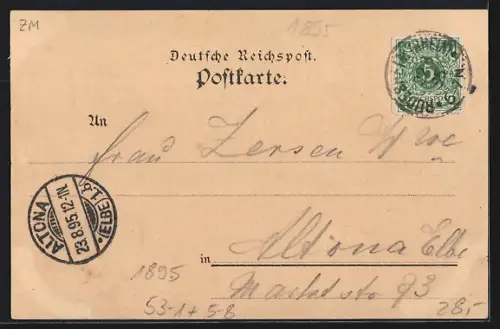 ZM
1895
Deutsche Reichspost.
Postkarte.
5
An
Frau Zersen Wwe
ALTONA
23.8.95.12-1N.
*(ELBE)1.b)
in Altona Elbe
1895
Marktstr 93
53-1+5-8
28,-